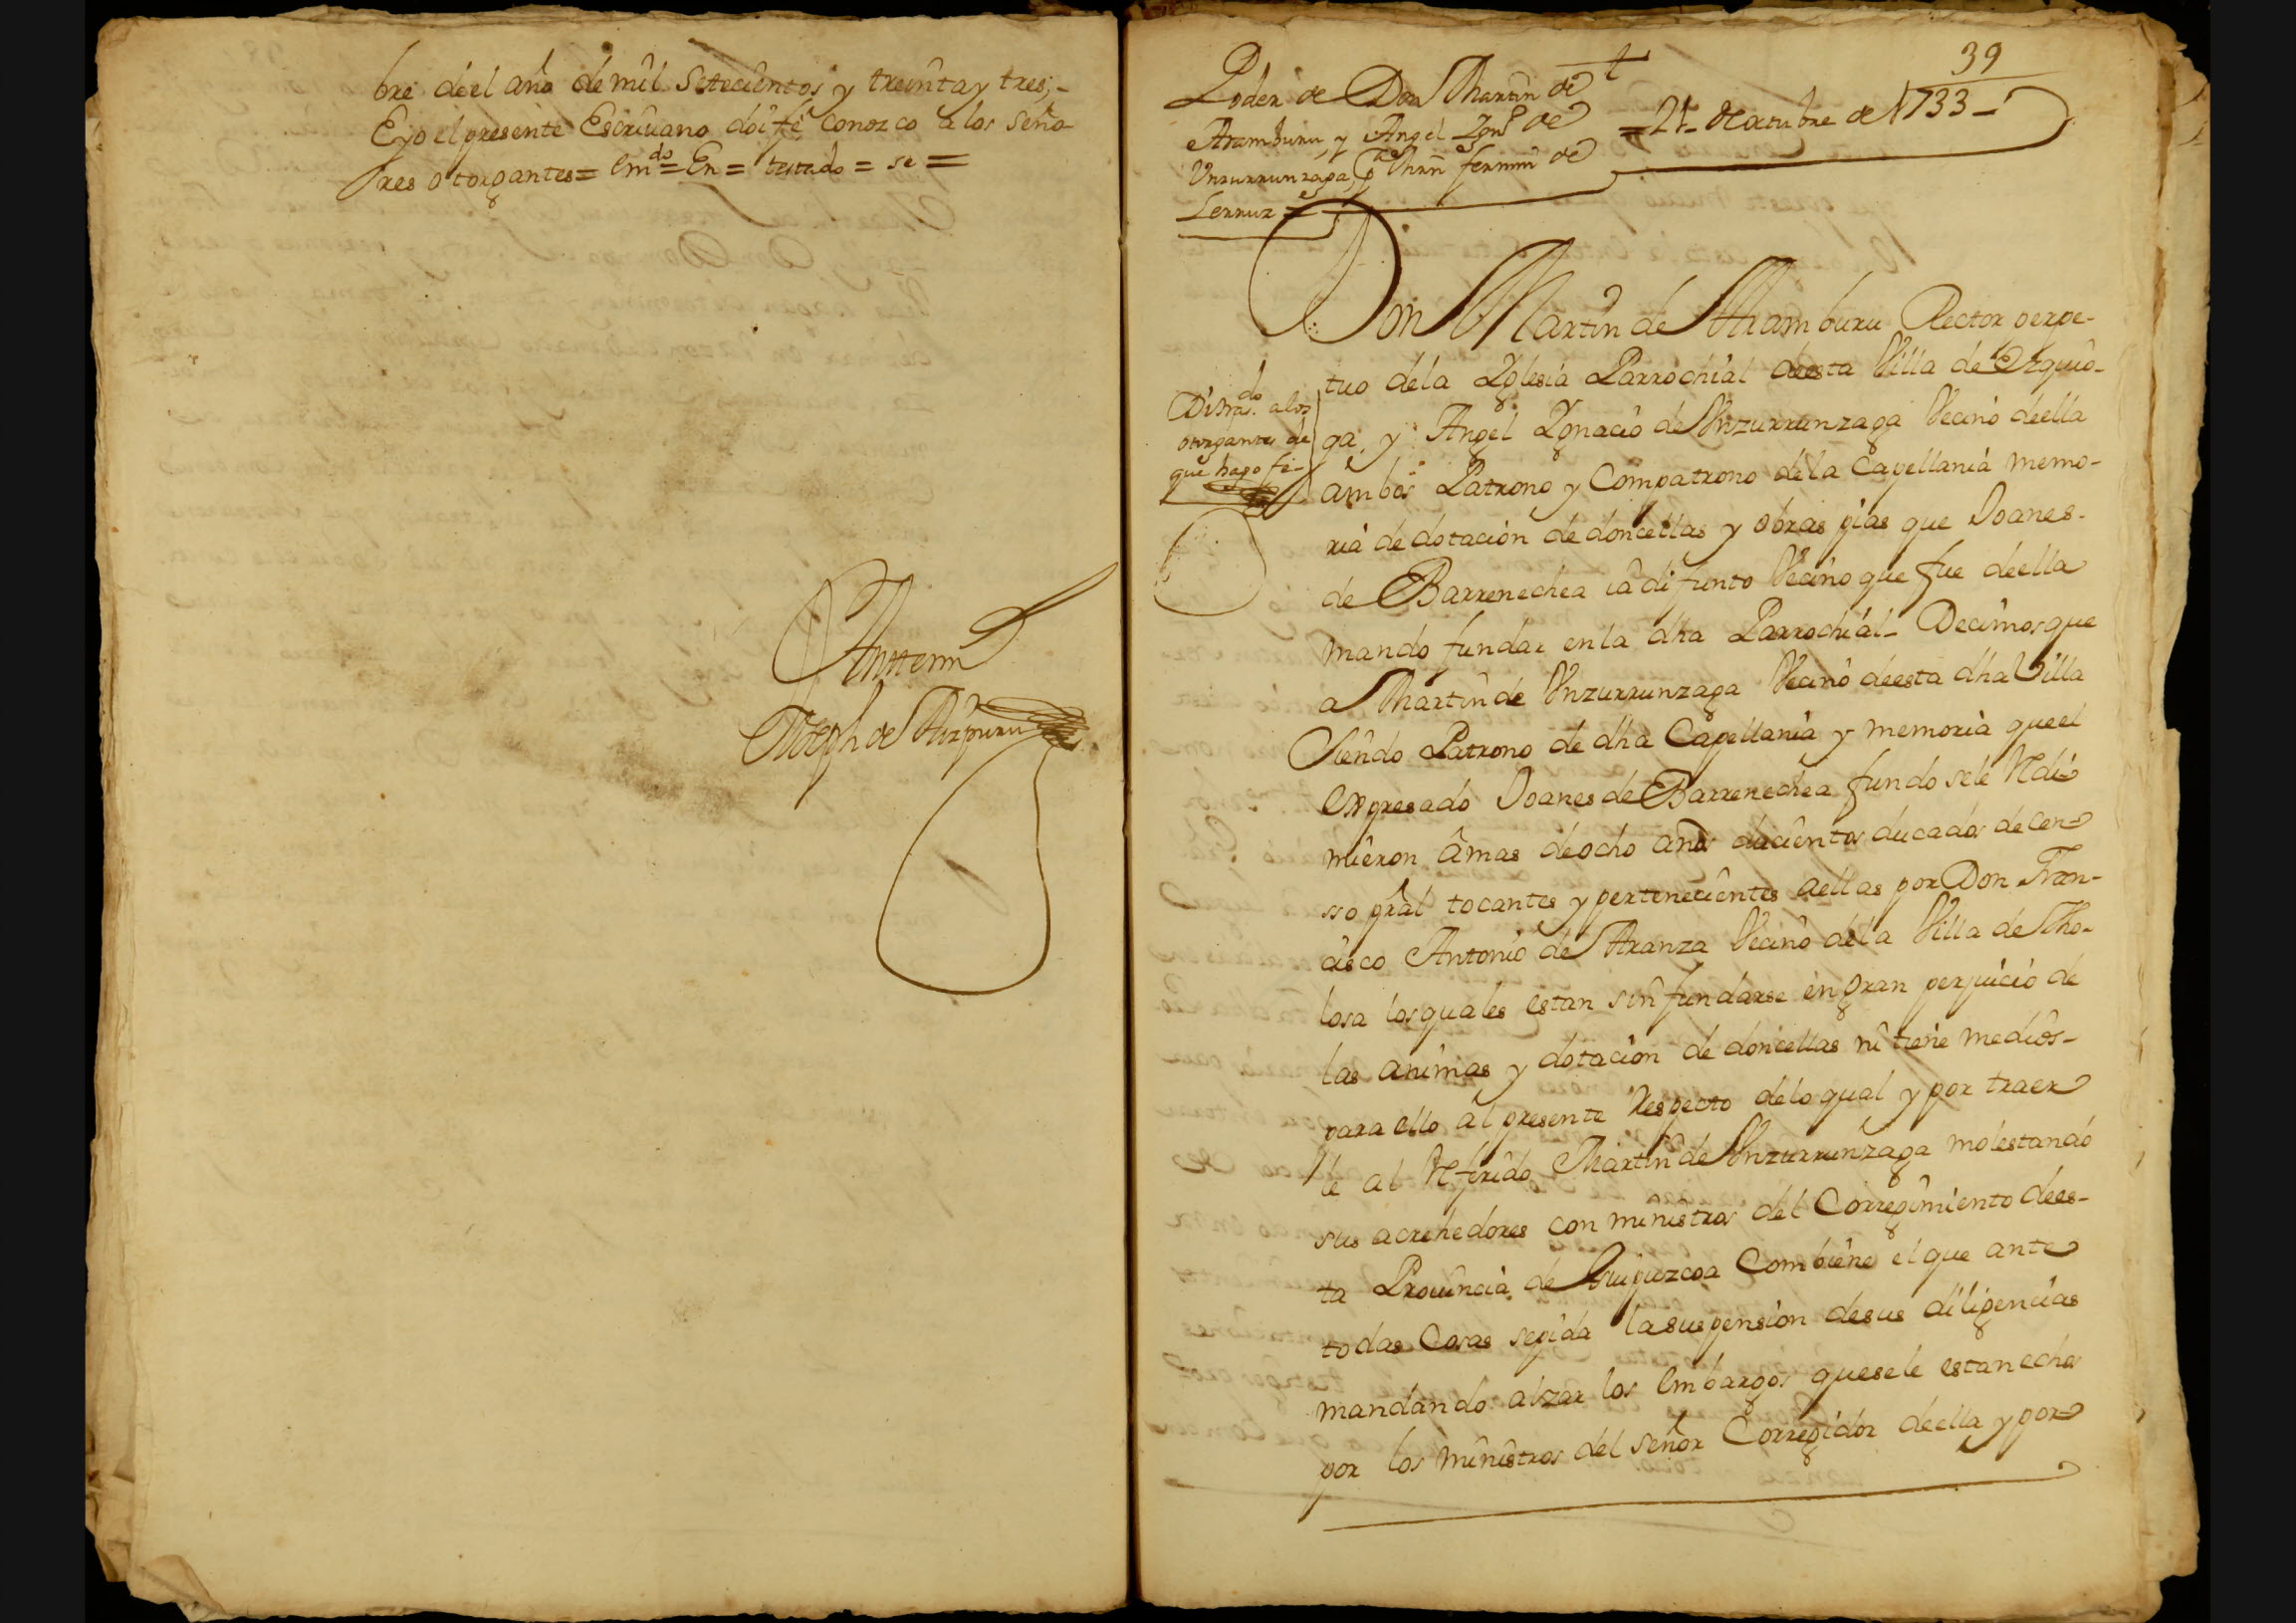 bre de el año de mil Setecientos y treinta y tres,-
E yo el presente Escriuano doi fe conozco a los Seño-
res otorgantes = Emdo = En = testado = se =
Antemi
Joseph de Aizpuru
39
Poder de Don Martin de
Aramburu, y Angel Ignº de
Unzurrunzaga, pª Mrn fermin de
Lerruz =
= 21 - de octubre de 1733 -
Don Martin de Aramburu Rector perpe-
tuo dela Yglesia Parrochial desta Villa de Azquio-
ga, y Angel Ygnacio de Unzurrunzaga Vecino deella
ambos Patrono y Compatrono dela Capellania memo-
ria de dotacion de doncellas y obras pias que Joanes-
de Barrenechea ia difunto Vecino que fue deella
mando fundar en la dha Parrochial- Decimos que
a Martin de Unzurrunzaga Vecino deesta dha Villa
Siendo Patrono de dha Capellania y memoria que el
expresado Joanes de Barrenechea fundo sele Redi-
mieron a mas de ocho anos ducientos ducados de cen-
sso gral tocantes y pertenecientes a ellas por Don Fran-
cisco Antonio de Aranza Vecino dela Villa de Tho-
losa los quales estan sin fundarse en gran perjuicio de
las animas y dotacion de doncellas ni tiene medios-
para ello al presente Respecto delo qual y por traer
le al Referido Martin de Unzurrunzaga molestando
sus acrehedores con ministros del Corregimiento dees-
ta Prouincia de Guipuzcoa Combiene el que ante
todas Cosas se pida la suspension de sus diligencias
mandando alzar los embargos que se le estan echos
por los ministros del señor Corregidor deella y por
Di trasdo a los
otorgantes de
que hago fe-